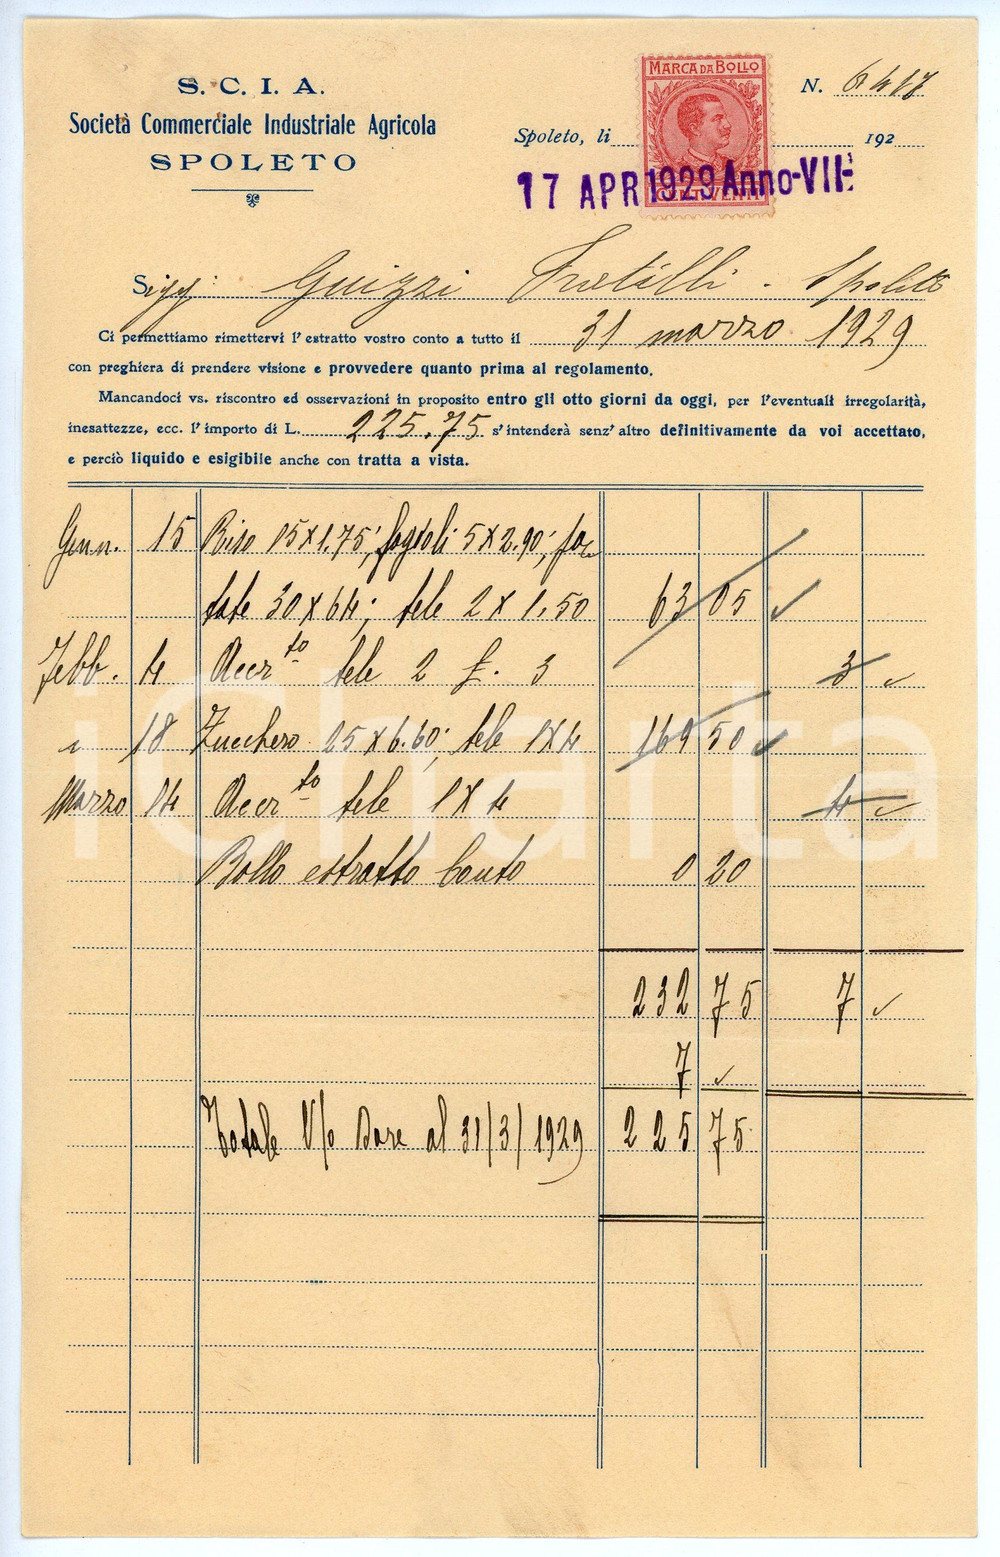 S. C. I. A.
Società Commerciale Industriale Agricola
SPOLETO
MARCA DA BOLLO
N. 6417
Spoleto, li 192
17 APR 1929 Anno-VII-
Sigg: Guizzi Fratelli - Spoleto
Ci permettiamo rimettervi l'estratto vostro conto a tutto il 31 marzo 1929
con preghiera di prendere visione e provvedere quanto prima al regolamento.
Mancandoci vs. riscontro ed osservazioni in proposito entro gli otto giorni da oggi, per l'eventuali irregolarità,
inesattezze, ecc. l'importo di L. 225.75 s'intenderà senz'altro definitivamente da voi accettato,
e perciò liquido e esigibile anche con tratta a vista.
Genn. 15 Riso 15x1.75; fagioli 5x2.90; pa-
tate 30x64; tele 2x1.50 63 05
Febb. 4 Accr.to tele 2 £. 3 3
" 18 Zucchero 25x6.60; tele 1x4 169 50
Marzo 14 Accr.to tele 1x4 4
Bollo estratto Conto 0 20
232 75 7
7
Totale V/o Dare al 31/3/1929 225 75
iCharta